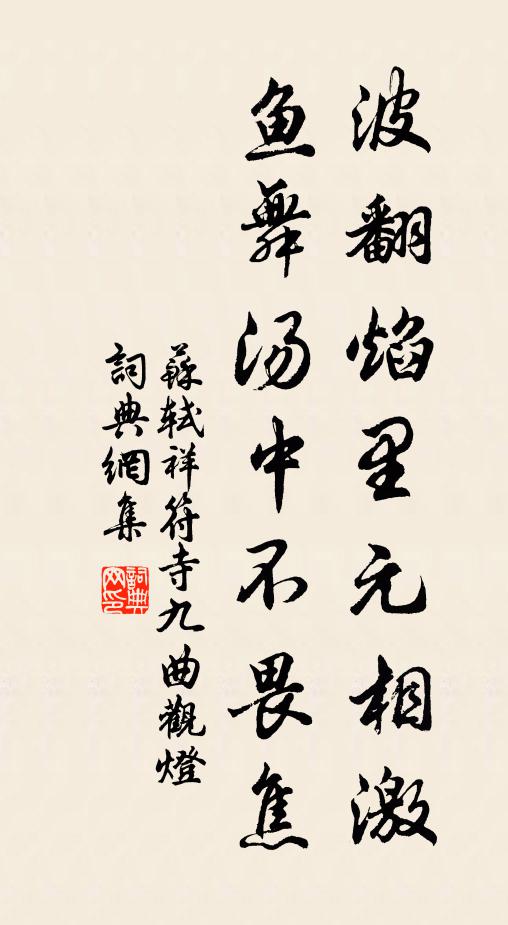 波翻焰里元相激
鱼舞汤中不畏焦
蘇軾祥符寺九曲觀燈
詞典網集
詞典
网印